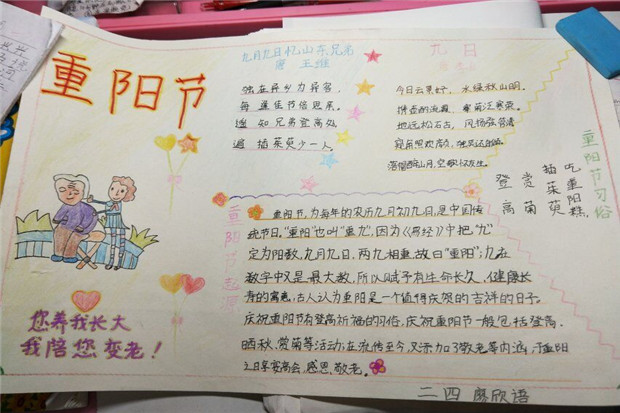 重阳节
九月九日忆山东兄弟
唐 王维
独在异乡为异客，
每逢佳节倍思亲。
遥知兄弟登高处
遍插茱萸少一人。
九日
今日云景好，水绿秋山明。
携壶酌流霞，搴菊泛寒荣。
地远松石古，风扬弦管清
窥觞照欢颜，独笑还自倾。
落帽醉山月，空歌怀友生。
重阳节习俗
吃重阳糕
插茱萸
赏菊
登高
重阳节起源
重阳节，为每年的农历九月初九日，是中国传
统节日，"重阳"也叫"重九"，因为《易经》中把"九"
定为阳数，九月九日，两九相重，故曰"重阳"；九在
数字中又是最大数，所以赋予有生命长久，健康长
寿的寓意，古人认为重阳是一个值得庆贺的吉祥的日子。
庆祝重阳节有登高祈福的习俗，庆祝重阳节一般包括登高，
晒秋、赏菊等活动，在流传至今，又添加了敬老等内涵，于重阳
之日享宴高会，感恩，敬老。
您养我长大
我陪您变老！
二四 廖欣语